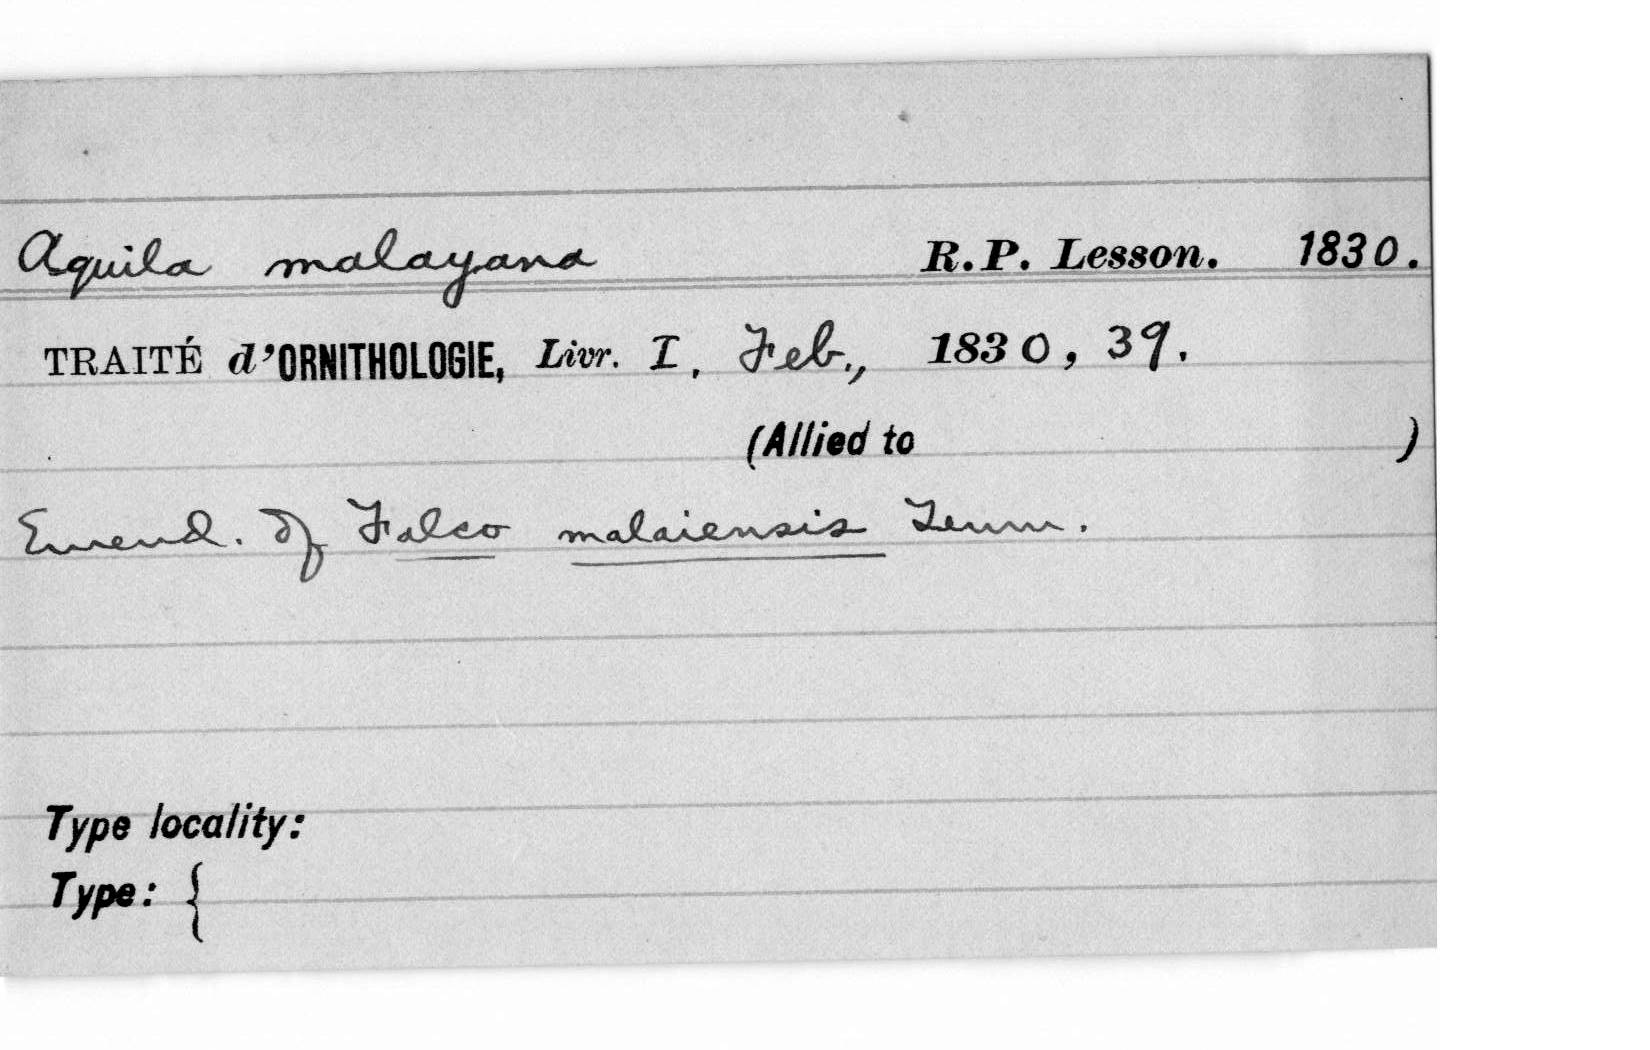 Aquila malayana R.P. Lesson. 1830.
TRAITÉ d'ORNITHOLOGIE, Livr. I, Feb., 1830, 39.
(Allied to )
Emend. of Falco malaiensis Temm.
Type locality:
Type: {